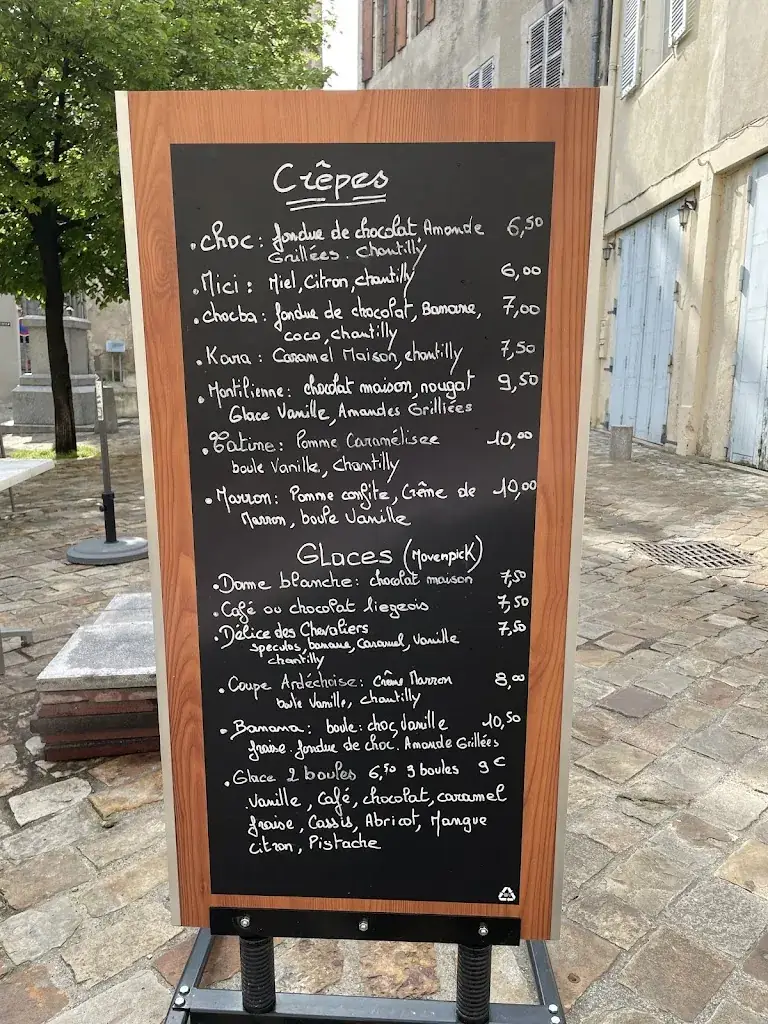 Crêpes
. choc : fondue de chocolat Amande 6,50
Grillées. Chantilly
. Mici : Miel, Citron, chantilly 6,00
. chocba : fondue de chocolat, Banane, 7,00
coco, chantilly
. Kara : Caramel Maison, chantilly 7,50
. Montilienne : chocolat maison, nougat 9,50
Glace Vanille, Amandes Grilliées
. Tatine : Pomme Caramélisee 10,00
boule Vanille, Chantilly
. Marron : Pomme confite, Crême de 10,00
Marron, boule Vanille
GLACES (MovenpicK)
. Dame blanche : chocolat maison 7,50
. Café ou chocolat liegeois 7,50
. Délice des Chevaliers 7,50
speculos, banane, Caramel, Vanille
chantilly
. Coupe Ardéchoise : Crême Marron 8,00
boule Vanille, chantilly
. Banana : boule : choc, Vanille 10,50
fraise. fondue de choc. Amande Grillées
. Glace 2 boules 6,50 3 boules 9€
Vanille, Café, chocolat, caramel
fraise, Cassis, Abricot, Mangue
Citron, Pistache